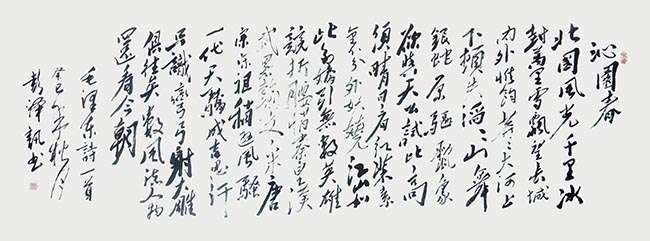 沁園春
北國風光千里冰
封萬里雪飄望長城
内外惟餘莽〻大河上
下頓失滔〻山舞
銀蛇原驅蠟象
欲與天公試比高
須晴日看紅裝素
裹分外妖嬈江山如
此多嬌引無數英雄
競折腰惜秦皇漢
武略輸文采唐
宗宋祖稍遜風騷
一代天驕成吉思汗
只識彎弓射大雕
俱往矣數風流人物
還看今朝
毛澤東詩一首
癸巳年秋月
彭澤书